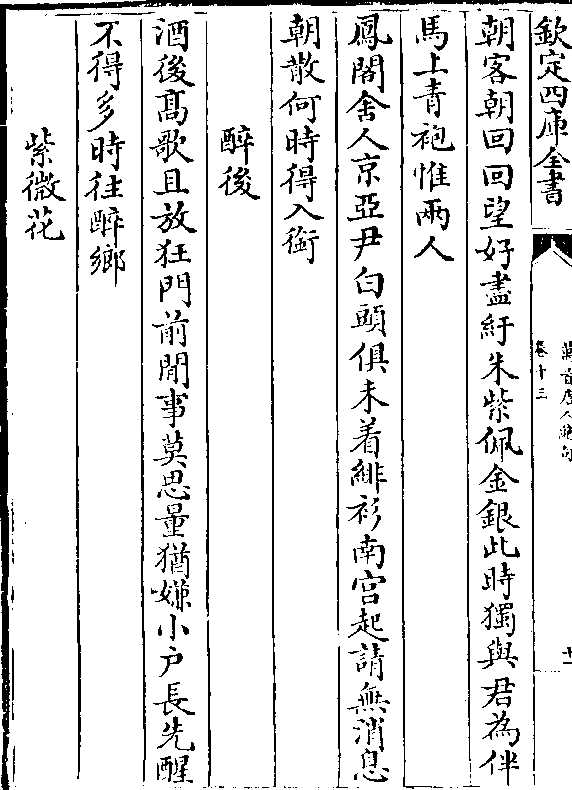 欽定四庫全書
萬首唐人絶句
卷十三
十一
朝客朝回回望好盡紆朱紫佩金銀此時獨與君為伴
馬上青袍惟兩人
鳳閣舍人京亞尹白頭俱未着緋衫南宫起請無消息
朝散何時得入銜
醉後
酒後髙歌且放狂門前閒事莫思量猶嫌小户長先醒
不得多時往醉鄉
紫微花